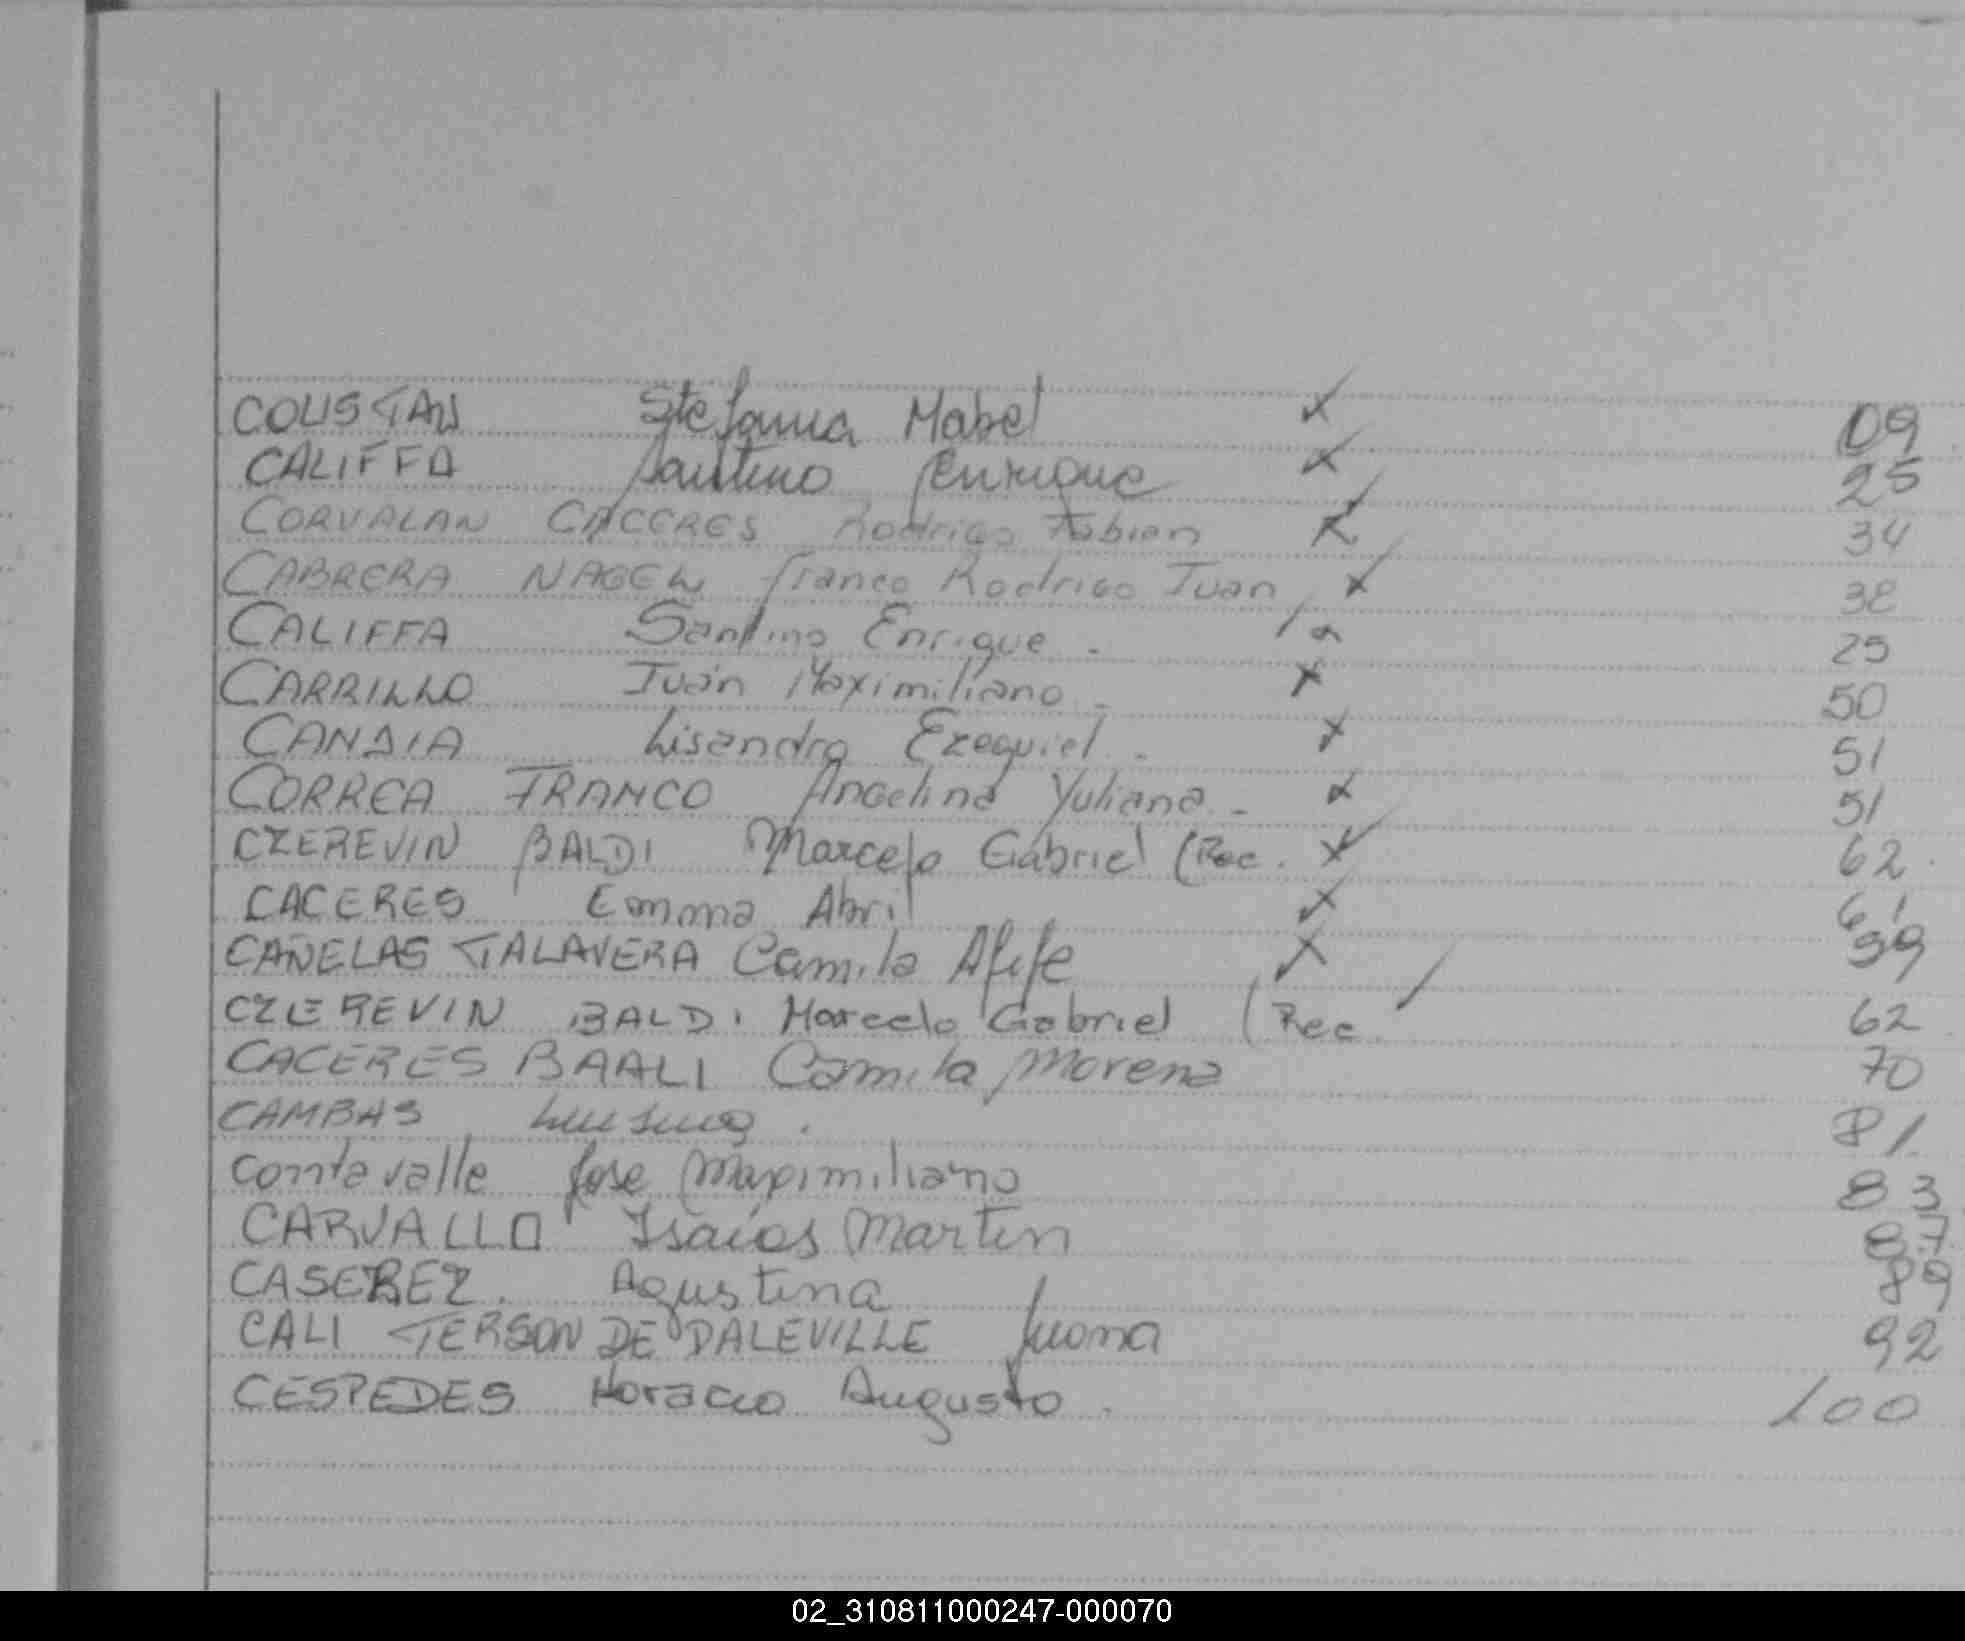 COUSTAU Stefania Mabel 09
CALIFFA Santino Enrique 25
CORVALAN CACERES Rodrigo Fabian 34
CABRERA NAGEL Franco Rodrigo Juan 38
CALIFFA Santino Enrique - 25
CARRILLO Juán Maximiliano - 50
CANDIA Lisandro Ezequiel - 51
CORREA FRANCO Angelina Yuliana - 51
CZEREVIN BALDI Marcelo Gabriel (Rec. 62
CACERES Emma Abril 61
CAÑELAS TALAVERA Camila Afife 59
CZEREVIN BALDI Marcelo Gabriel (Rec. 62
CACERES BAALI Camila Morena 70
CAMBAS 81
Contavalle Jose Maximiliano 83
CARVALLO Isaias Martin 87
Agustina 89
CALI TERSON DE DALEVILLE Juana 92
CESPEDES Horacio Augusto. 100
02_310811000247-000070